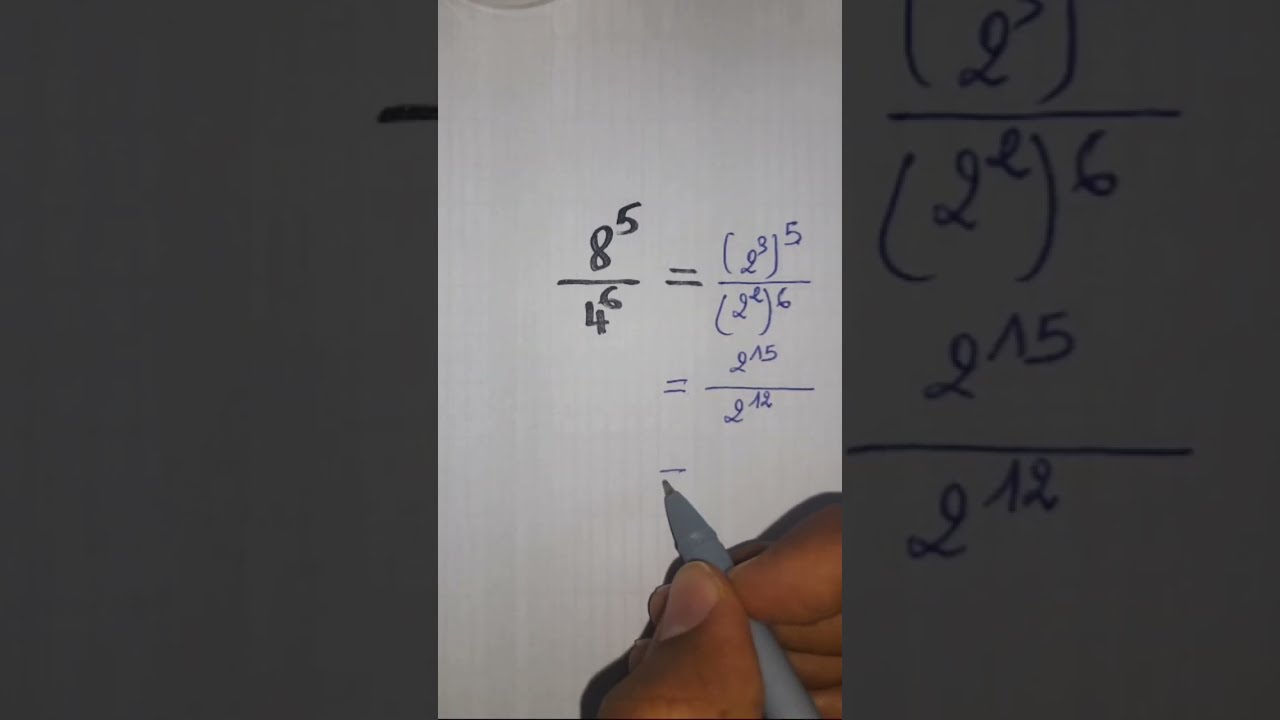 8^5 / 4^6 = (2^3)^5 / (2^2)^6
= 2^15 / 2^12
=